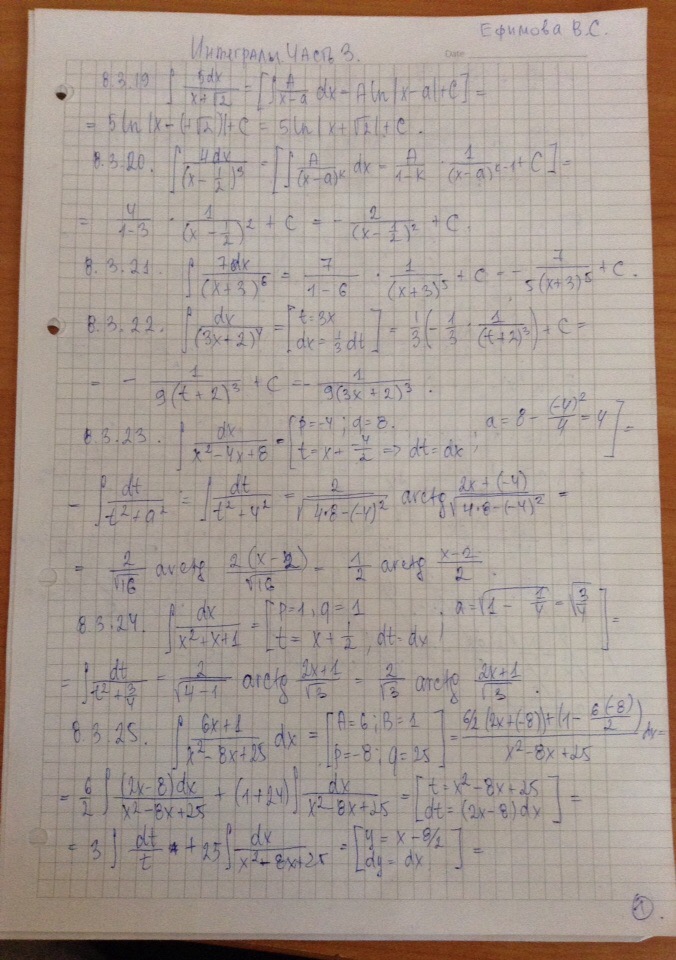 Ефимова В.С.
Интегралы часть 3.
8.3.19 ∫ 5dx/(x+√2) = [∫ A/(x-a) dx = A ln|x-a|+C] =
= 5 ln|x-(-√2)|+C = 5 ln|x+√2|+C.
8.3.20. ∫ 4dx/(x-1/2)^3 = [∫ A/(x-a)^k dx = A/(1-k) · 1/(x-a)^(k-1) + C] =
= 4/(1-3) · 1/(x-1/2)^2 + C = - 2/(x-1/2)^2 + C.
8.3.21. ∫ 7dx/(x+3)^6 = 7/(1-6) · 1/(x+3)^5 + C = - 7/(5(x+3)^5) + C.
8.3.22. ∫ dx/(3x+2)^4 = [t=3x dx=1/3 dt] = 1/3(-1/3 · 1/(t+2)^3) + C =
= - 1/(9(t+2)^3) + C = - 1/(9(3x+2)^3).
8.3.23. ∫ dx/(x^2-4x+8) = [p=-4; q=8. t=x+ -4/2 => dt=dx; a=8-(-4)^2/4=4] =
- ∫ dt/(t^2+a^2) = ∫ dt/(t^2+4^2) = 2/√(4·8-(-4)^2) arctg (2x+(-4))/√(4·8-(-4)^2) =
= 2/√16 arctg 2(x-2)/√16 = 1/2 arctg (x-2)/2.
8.3.24. ∫ dx/(x^2+x+1) = [p=1, q=1 t=x+1/2, dt=dx; a=√(1-1/4)=√(3/4)] =
= ∫ dt/(t^2+3/4) = 2/√(4-1) arctg (2x+1)/√3 = 2/√3 arctg (2x+1)/√3.
8.3.25. ∫ (6x+1)/(x^2-8x+25) dx = [A=6; B=1 p=-8; q=25] = (6/2(2x+(-8))+(1-6(-8)/2))/(x^2-8x+25) dx =
= 6/2 ∫ (2x-8)dx/(x^2-8x+25) + (1+24)∫ dx/(x^2-8x+25) = [t=x^2-8x+25 dt=(2x-8)dx] =
= 3 ∫ dt/t + 25∫ dx/(x^2-8x+25) = [y=x-8/2 dy=dx] =
1.